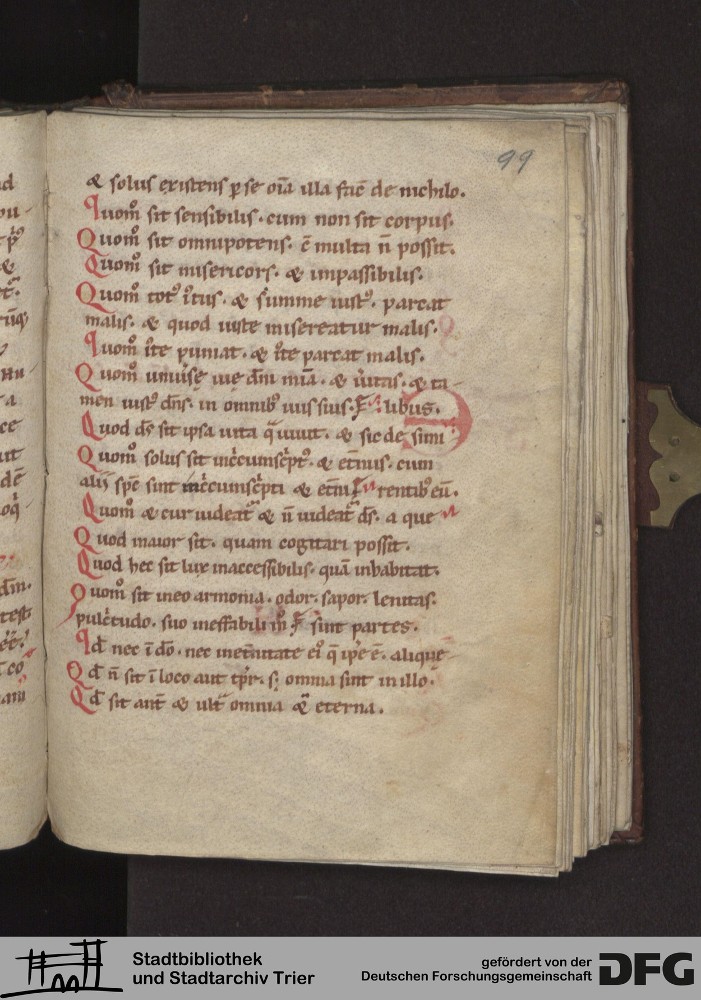 99
& solus existens ꝑ se oı̄a illa fec̄ de nichilo.
Quom̄ sit sensibilis. cum non sit corpus.
Quom̄ sit omnipotens. c̄ multa n̄ possit.
Quom̄ sit misericors. & impassibilis.
Quom̄ tot᷒ ı̄tus. & sūme iust᷒. parcat
malis. & quod iuste misereatur malis.
Quom̄ iı̄te puniat. & iı̄te parcat malis.
Quom̄ uniūse uie dn̄i mı̄a. & ūitas. & ta-
men iust᷒ dn̄s. in omnib᷒ uiis suis. libus.
Quod ds̄ sit ipsa uita q̄ uiuit. & sic de simi
Quom̄ solus sit inc̄cumsc̄pt᷒. & et̄nus. cum
alii sp̄c sint inc̄cumsc̄pti & et̄ni. rentib᷒ eū.
Quom̄ & cur uideat᷑ & n̄ uideat᷑ ds̄. a que
Quod maior sit. quam cogitari possit.
Quod hec sit lux inaccessibilis. quā inhabitat.
Quom̄ sit in eo armonia. odor. sapor. lenitas.
pulc̄tudo. suo ineffabili m̊. sint partes.
Qd̄ nec ı̄ dō. nec in et̄nitate ei᷒ q̄ ip̄e ē. aliquē
Qd̄ n̄ sit ı̄ loco aut tp̄r. sꝫ omnia sint in illo.
Qd̄ sit ant̄ & ult̄ omnia & eterna.
Stadtbibliothek
und Stadtarchiv Trier
gefördert von der
Deutschen Forschungsgemeinschaft
DFG